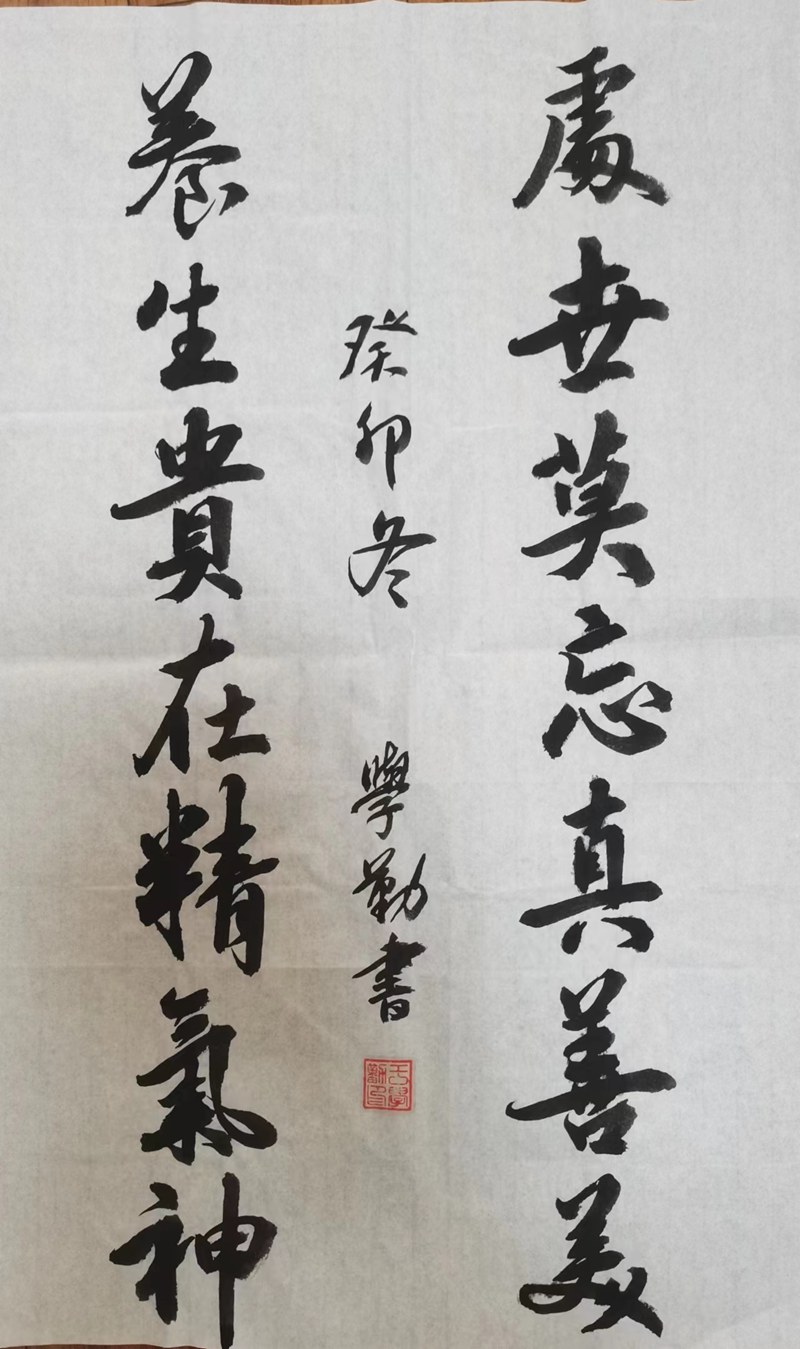 處世莫忘真善美
癸卯冬 學勤書
養生貴在精氣神